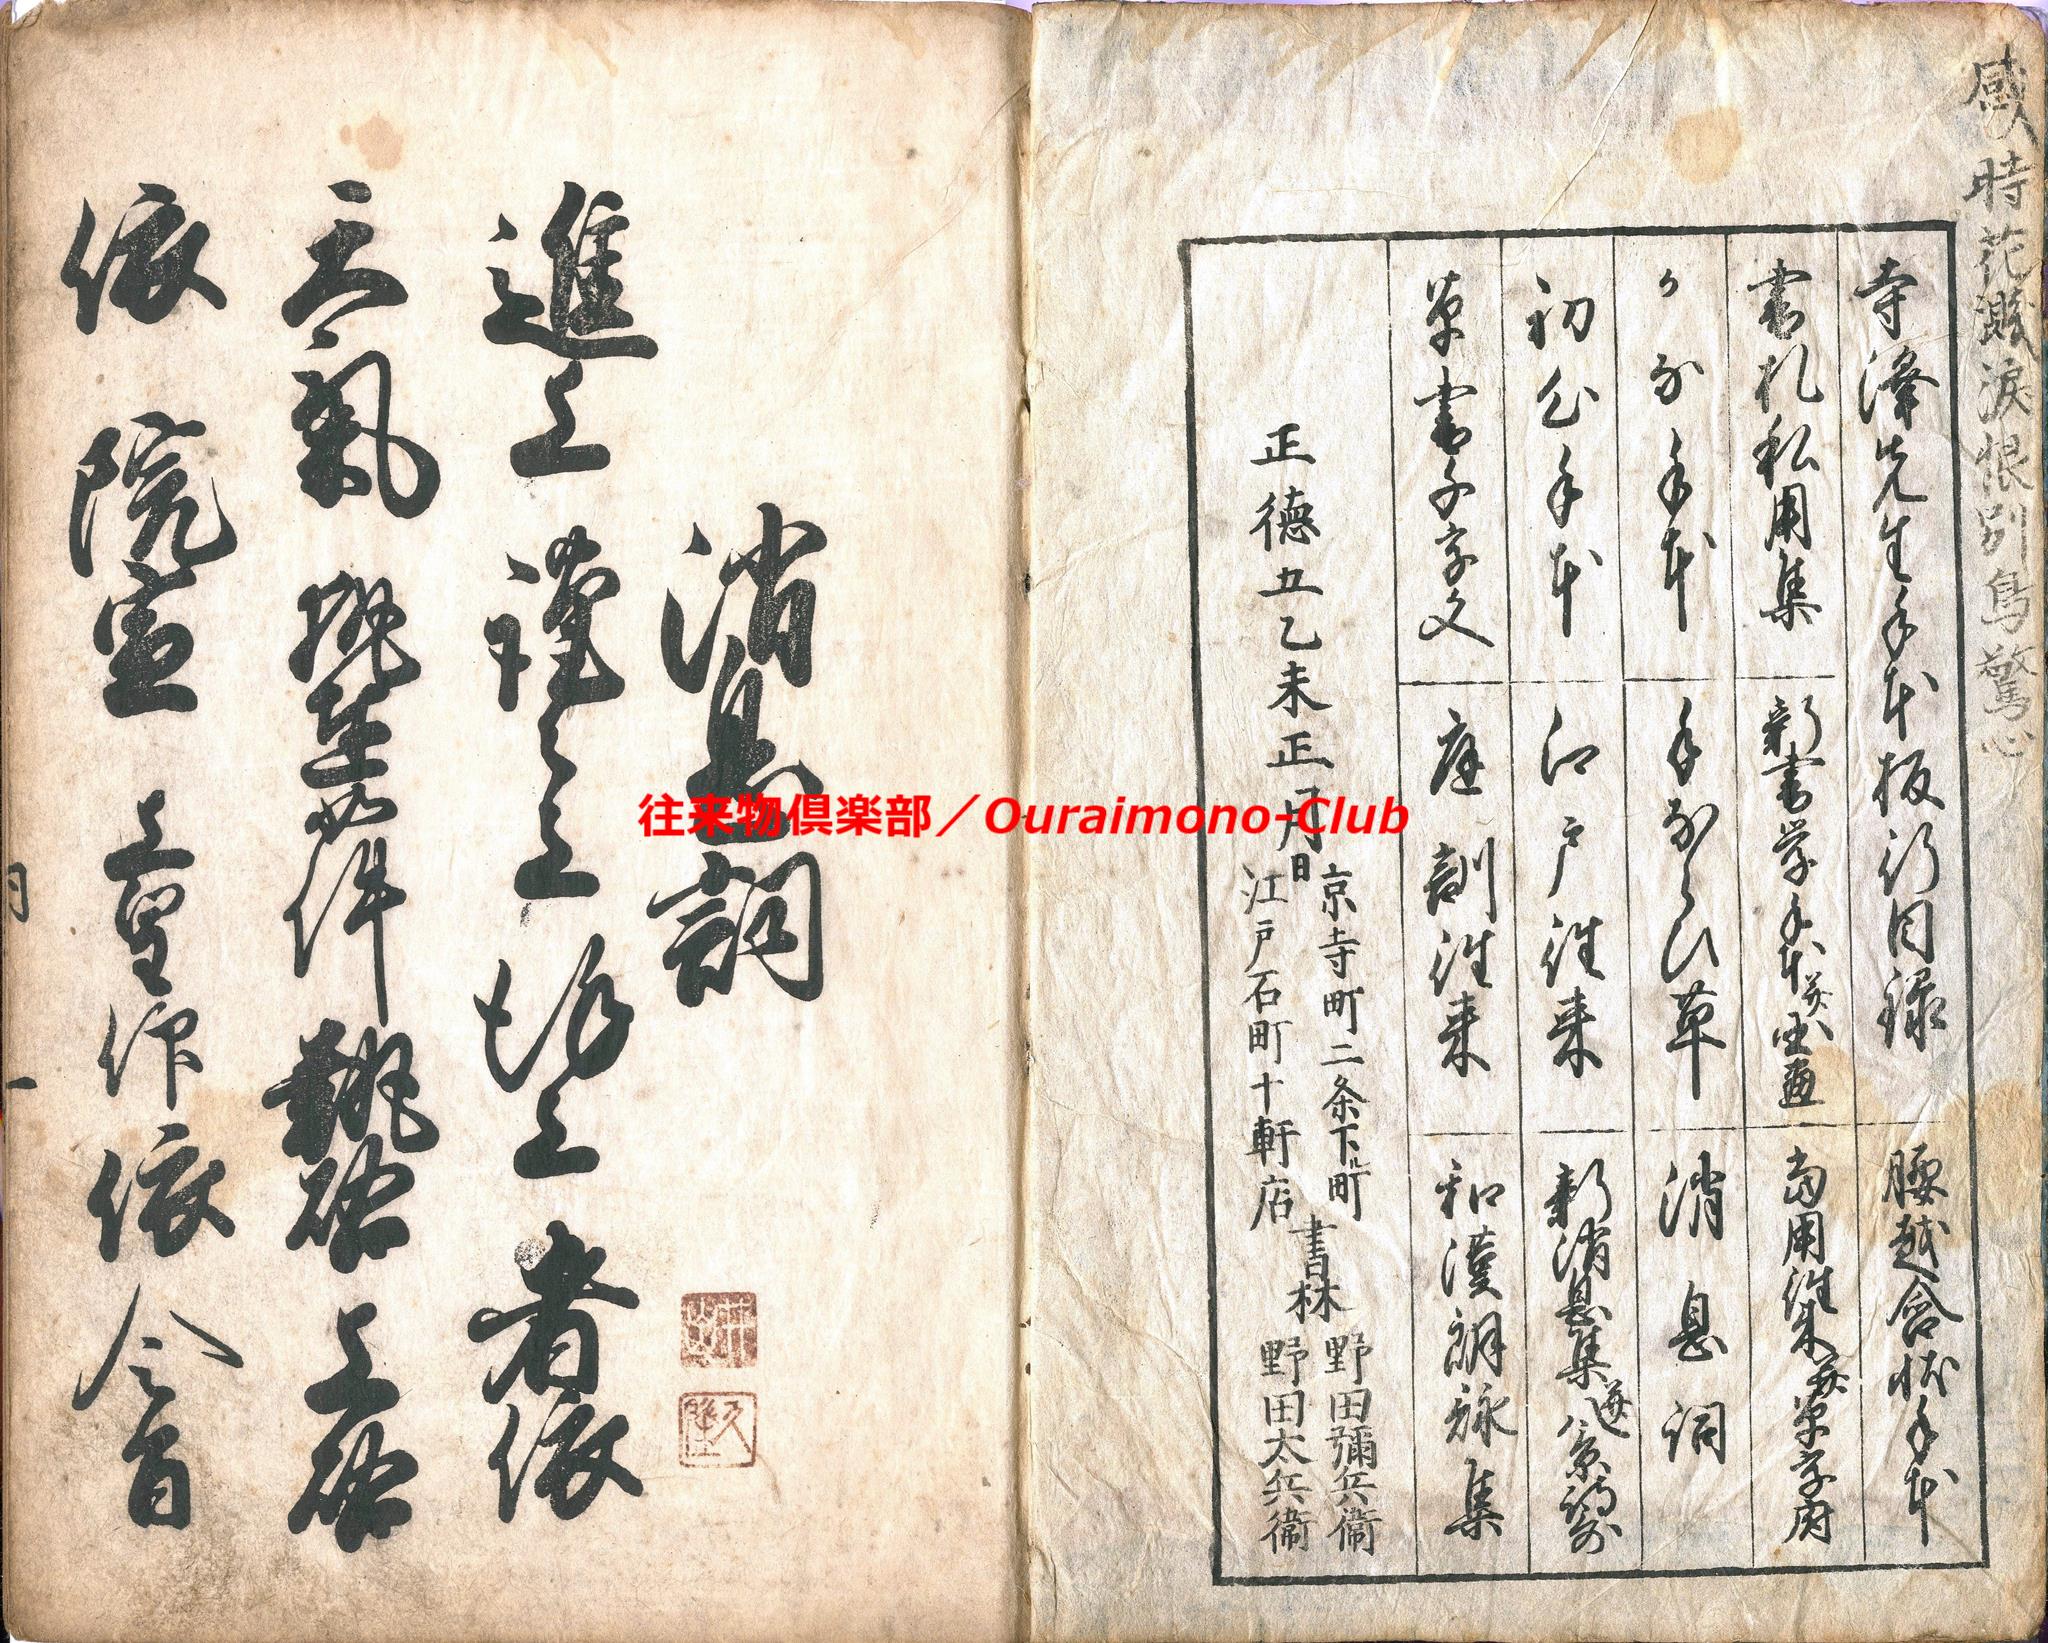 感時花濺涙恨別鳥驚心
寺澤先生手本板行目録
腰越含状手本
書札私用集
新書学手本
当用往来
かな手本
手ならひ草
消息詞
初心手本
江戸往来
新消息集
草書千字文
庭訓往来
和漢朗詠集
正徳五乙未正月日
京寺町二条下ル町
江戸石町十軒店
書林
野田彌兵衛
野田太兵衛
消息詞
進上 謹々上 拝上 者依
天氣 執達如件 執啓 上啓
依 院宣 上皇仰 依 令旨
往来物倶楽部／Ouraimono-Club